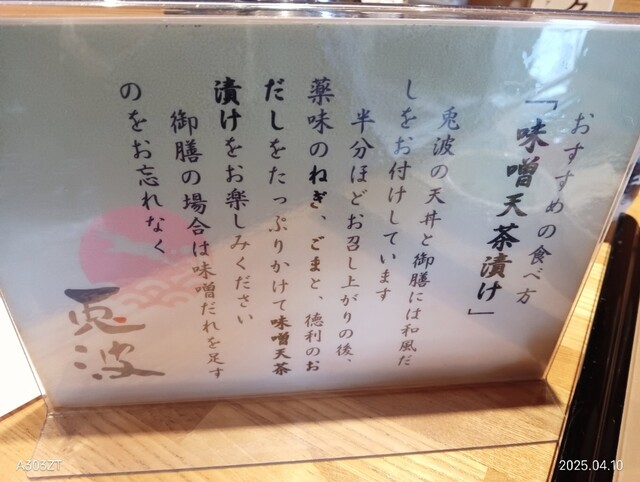 おすすめの食べ方
「味噌天茶漬け」
兎波の天丼と御膳には和風だ
しをお付けしています
半分ほどお召し上がりの後、
薬味のねぎ、ごまと、徳利のお
だしをたっぷりかけて味噌天茶
漬けをお楽しみください
御膳の場合は味噌だれを足す
のをお忘れなく
兎波
A303ZT
2025.04.10